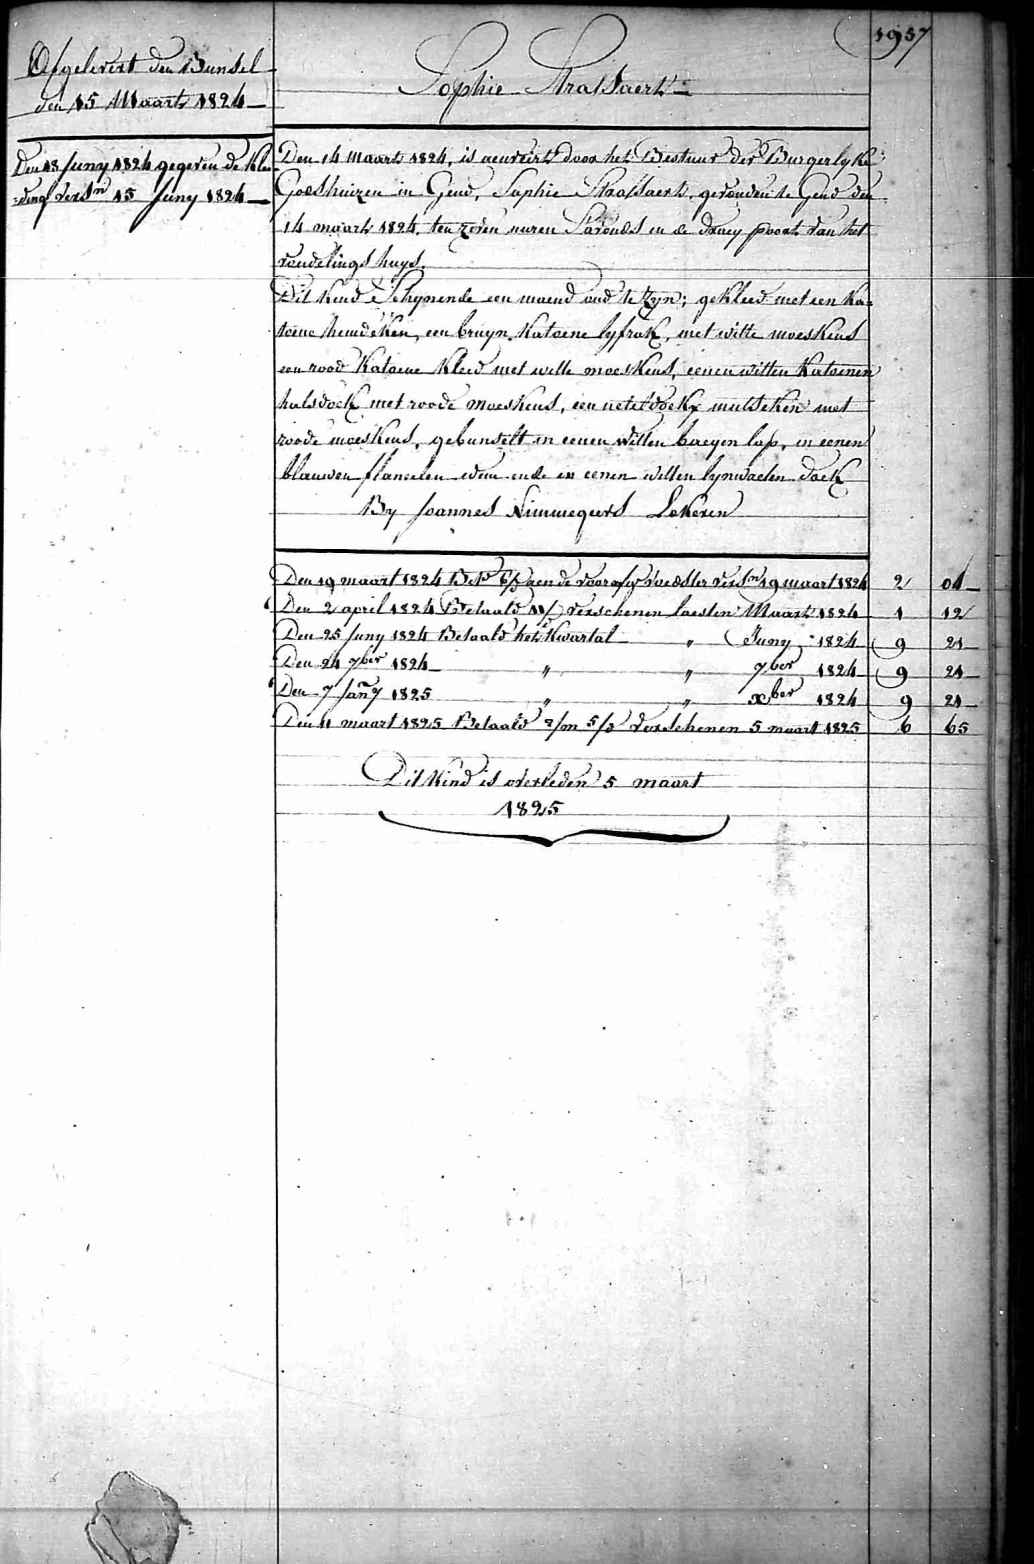 1957
Afgelevert den Bunsel
den 15 Maart 1824
Sophie Strassaert
Den 13 Juny 1824 gegeven de klee
=ding versn 15 Juny 1824
Den 14 maart 1824, is aenveirt door het Bestuur der Burgerlyke
Godshuizen in Gend, Sophie Strassaert, gevonden te Gend den
14 maart 1824, ten zeven uuren S'avonds in de draey poort van het
vondelings huys.
Dit Kind Schynende een maend oud te zyn; gekleed met een ka=
toene hemdeken, een bruyn katoene lyfrok, met witte moeskens
een rood katoene kleed met witte moeskens, eenen witten katoenen
halsdoek met roode moeskens, een neteldoeke mutseken met
roode moeskens, gebunselt in eenen witten baeyen lap, in eenen
blauwen flanelen en in eenen witten lynwaeten doek
By Joannes Nimmegeers Lokeren
Den 19 maart 1824 aen de voorafg voedster versn 19 maart 1824 2 01
Den 2 april 1824 Betaald verschenen laesten Maart 1824 1 12
Den 25 Juny 1824 Betaald het Kwartal " Juny 1824 9 21
Den 24 7ber 1824 " " 7ber 1824 9 21
Den 7 Jany 1825 " " xber 1824 9 21
Den 11 maart 1825 Betaald 2/m 5/d verschenen 5 maart 1825 6 65
Dit Kind is overleden 5 maart
1825